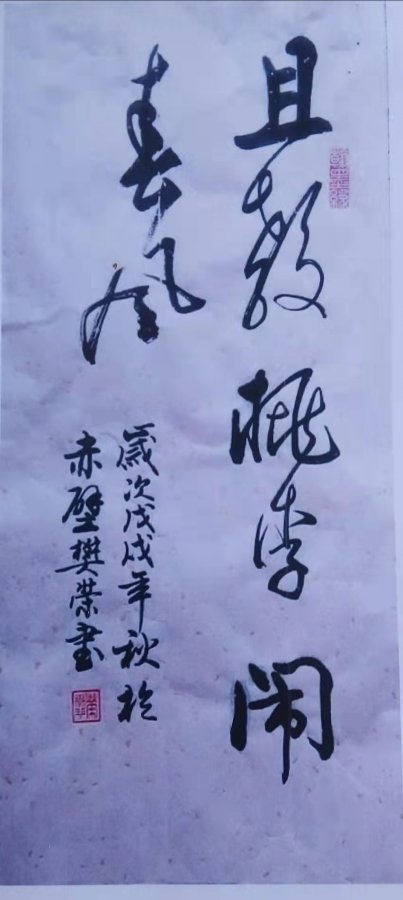 且教桃李闹
春风
歲次戊戌年秋於
赤壁樊荣書